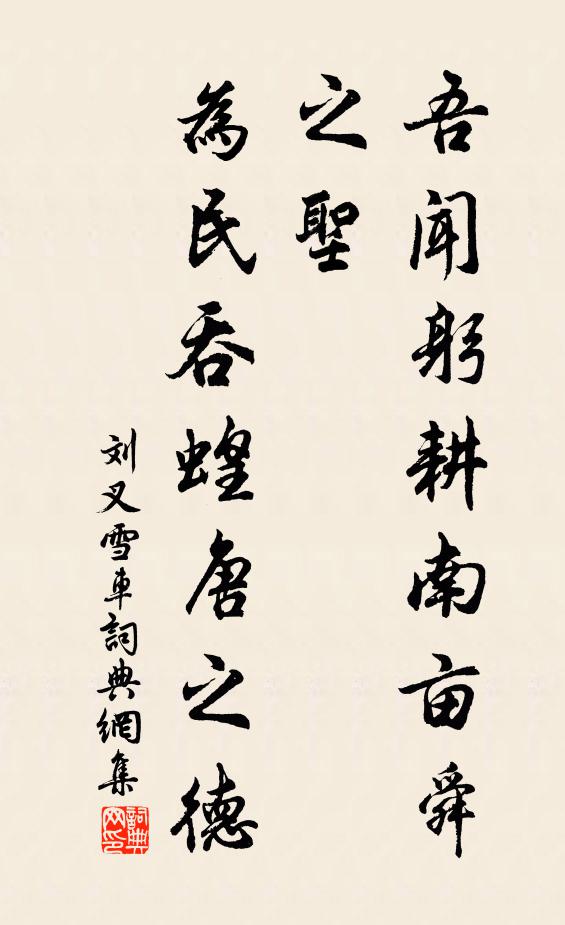 吾闻躬耕南亩舜
之聖
為民吞蝗唐之德
刘叉雪車詞典網集
詞典
网印